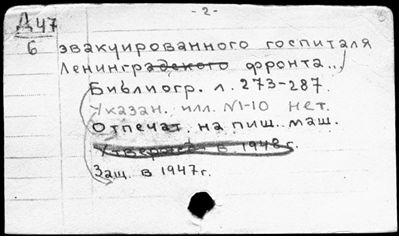 - 2 -
Д 47
6
эвакуированного госпиталя
Ленинградского фронта..,
Библиогр. л. 273-287.
Указан. илл. №1-10 нет.
Отпечат. на пиш. маш.
Утвержд. в 1948 г.
Защ. в 1947 г.